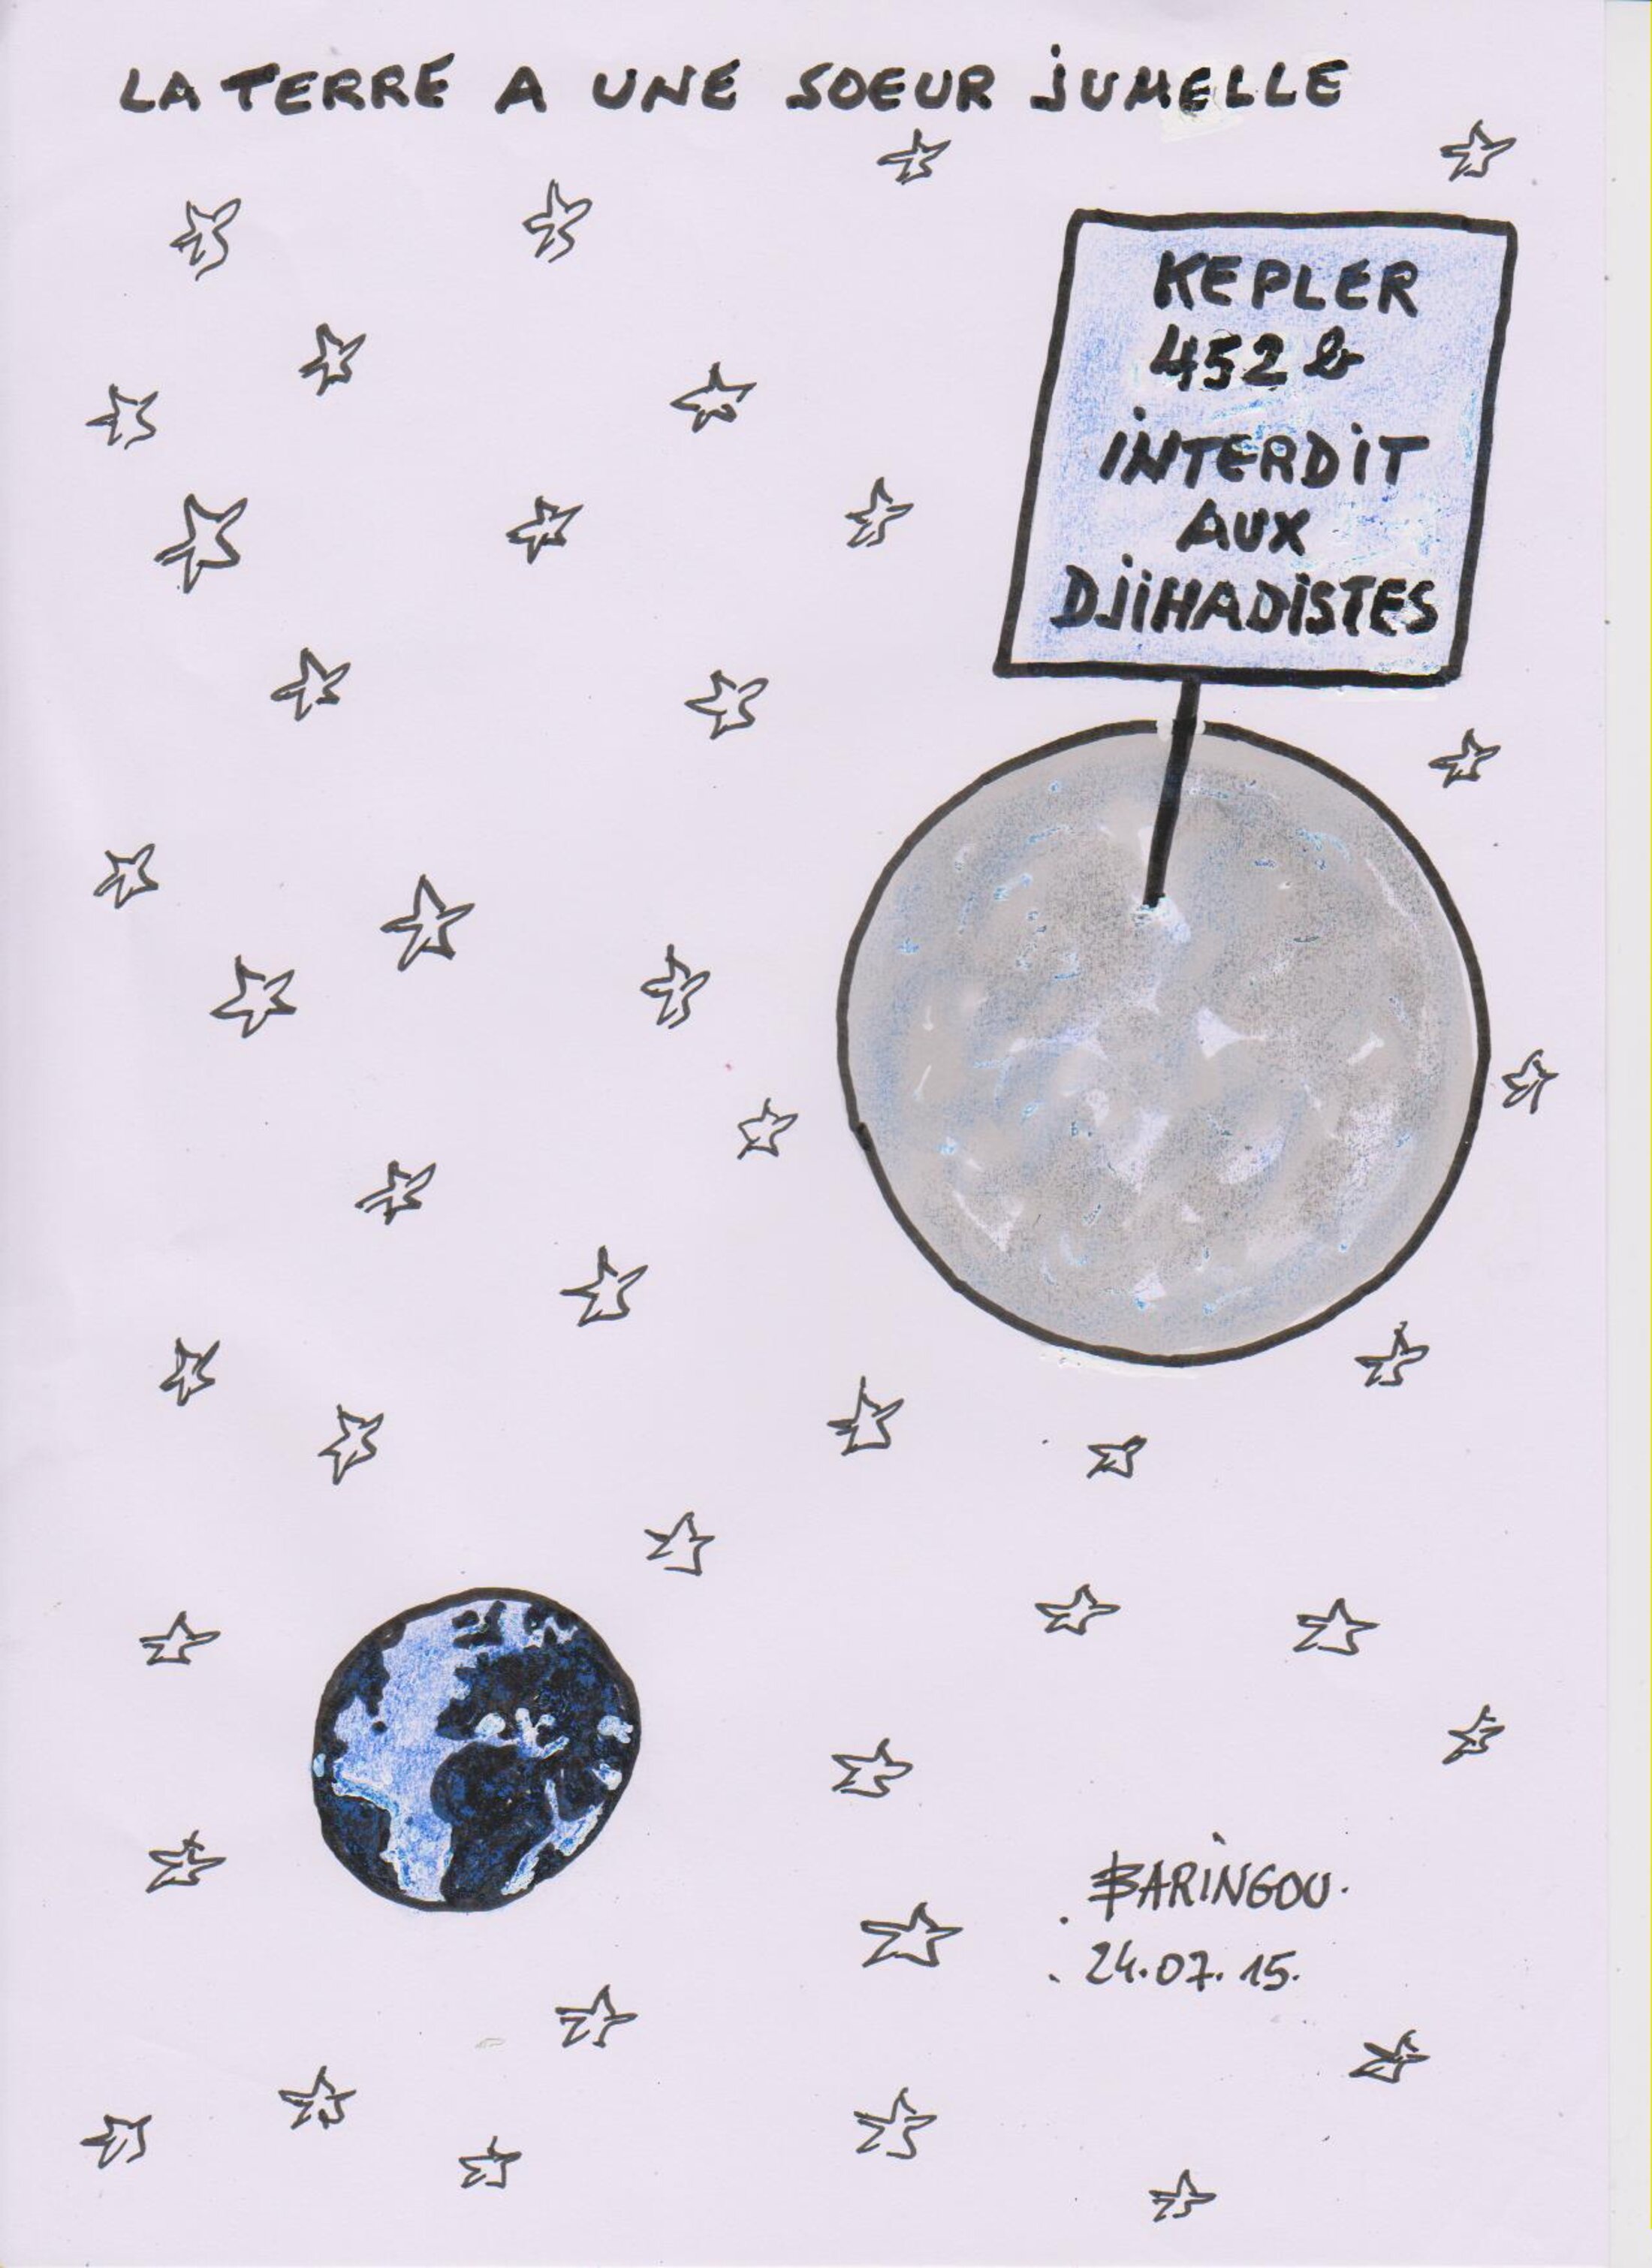 LA TERRE A UNE SOEUR JUMELLE
KEPLER
452 b
INTERDIT
AUX
DJIHADISTES
BARINGOU.
24.07.15.